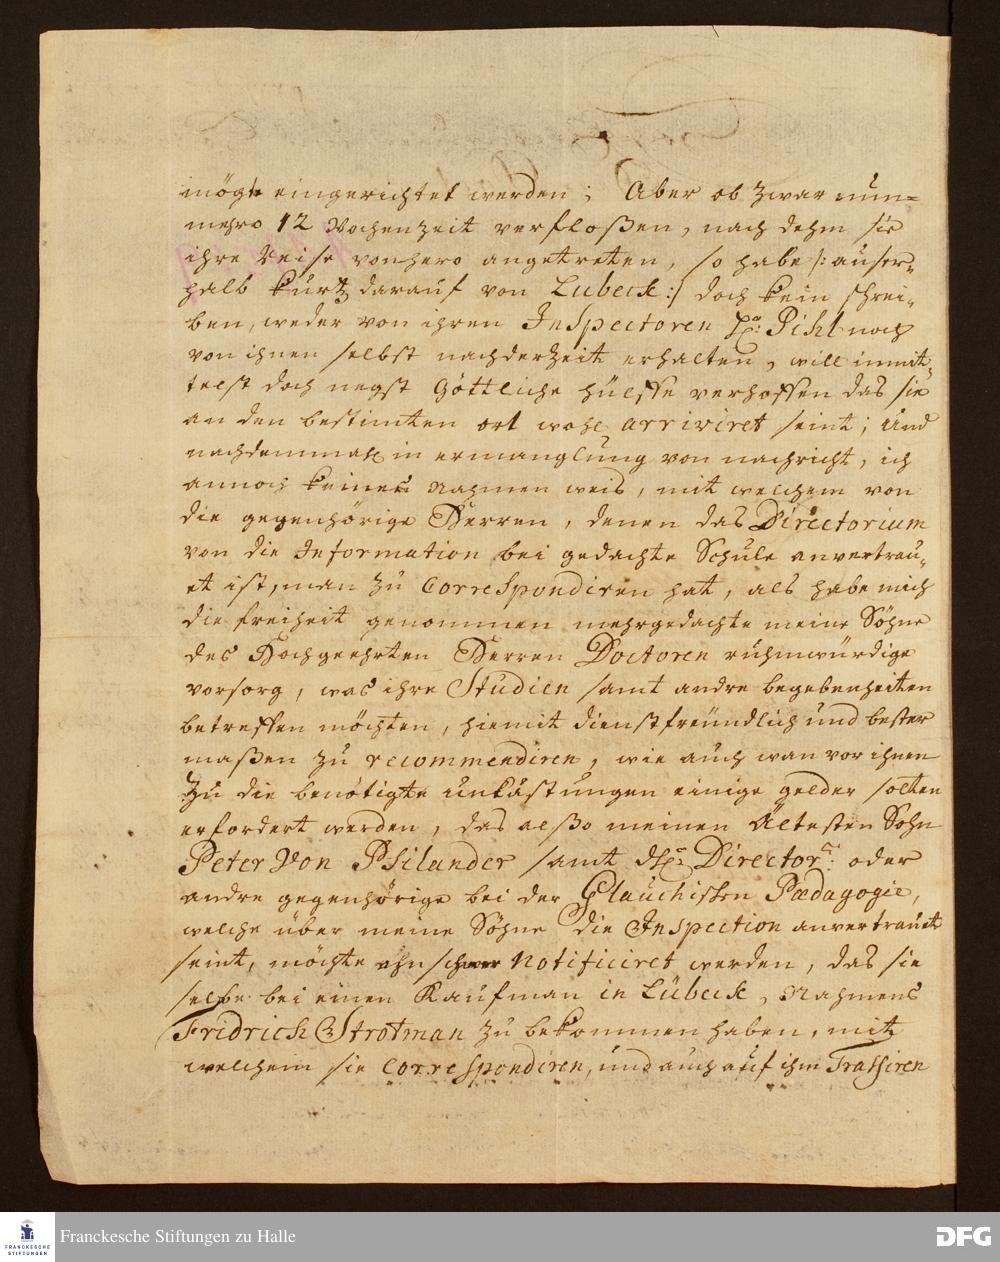 mögte eingerichtet werden; Aber ob zwar nun=
mehro 12 Wochen zeit verfloßen, nach dehm sie
ihre Reise von hero angetreten, so habe /: auser=
halb kurtz darauf von Lubeck :/ doch kein schrei=
ben, weder von ihren Inspectoren Pihl noch
von ihnen selbst nach der zeit erhalten, will inmit=
telst doch negst Göttliche hülffe verhoffen das sie
an den bestimten ort wohl arriviret seint; und
nachdemmahl in ermanglung von nachricht, ich
annoch keinen Nahmen weis, mit welchem von
die gegenhörige Herren, denen das Directorium
von die Information bei gedachte Schule anvertrau=
et ist, man zu correspondiren hat, als habe mich
die freiheit genommen mehrgedachte meine Söhne
des Hochgeehrten Herren Doctoren ruhmwürdige
vorsorg, was ihre Studien samt andre begebenheiten
betreffen möchten, hiemit dienstfreündlich und bester
maßen zu recommendiren, wie auch wan vor ihnen
zu die benötigte unkåstungen einige gelder solten
erfordert werden, das alßo meinen Ältesten Sohn
Peter Von Psilander samt Director oder
andre gegenhörige bei der Glauchischen Pædagogie,
welche über meine Söhne die Inspection anvertrauet
seint, möchte ohnschwer notificiret werden, das sie
selbe bei einen Kaufman in Lübeck, Nahmens
Fridrich Strotman zu bekommen haben, mit
welchem sie correspondiren, und auch auf ihm Trassiren
Franckesche Stiftungen zu Halle
FRANCKESCHE
STIFTUNGEN
DFG